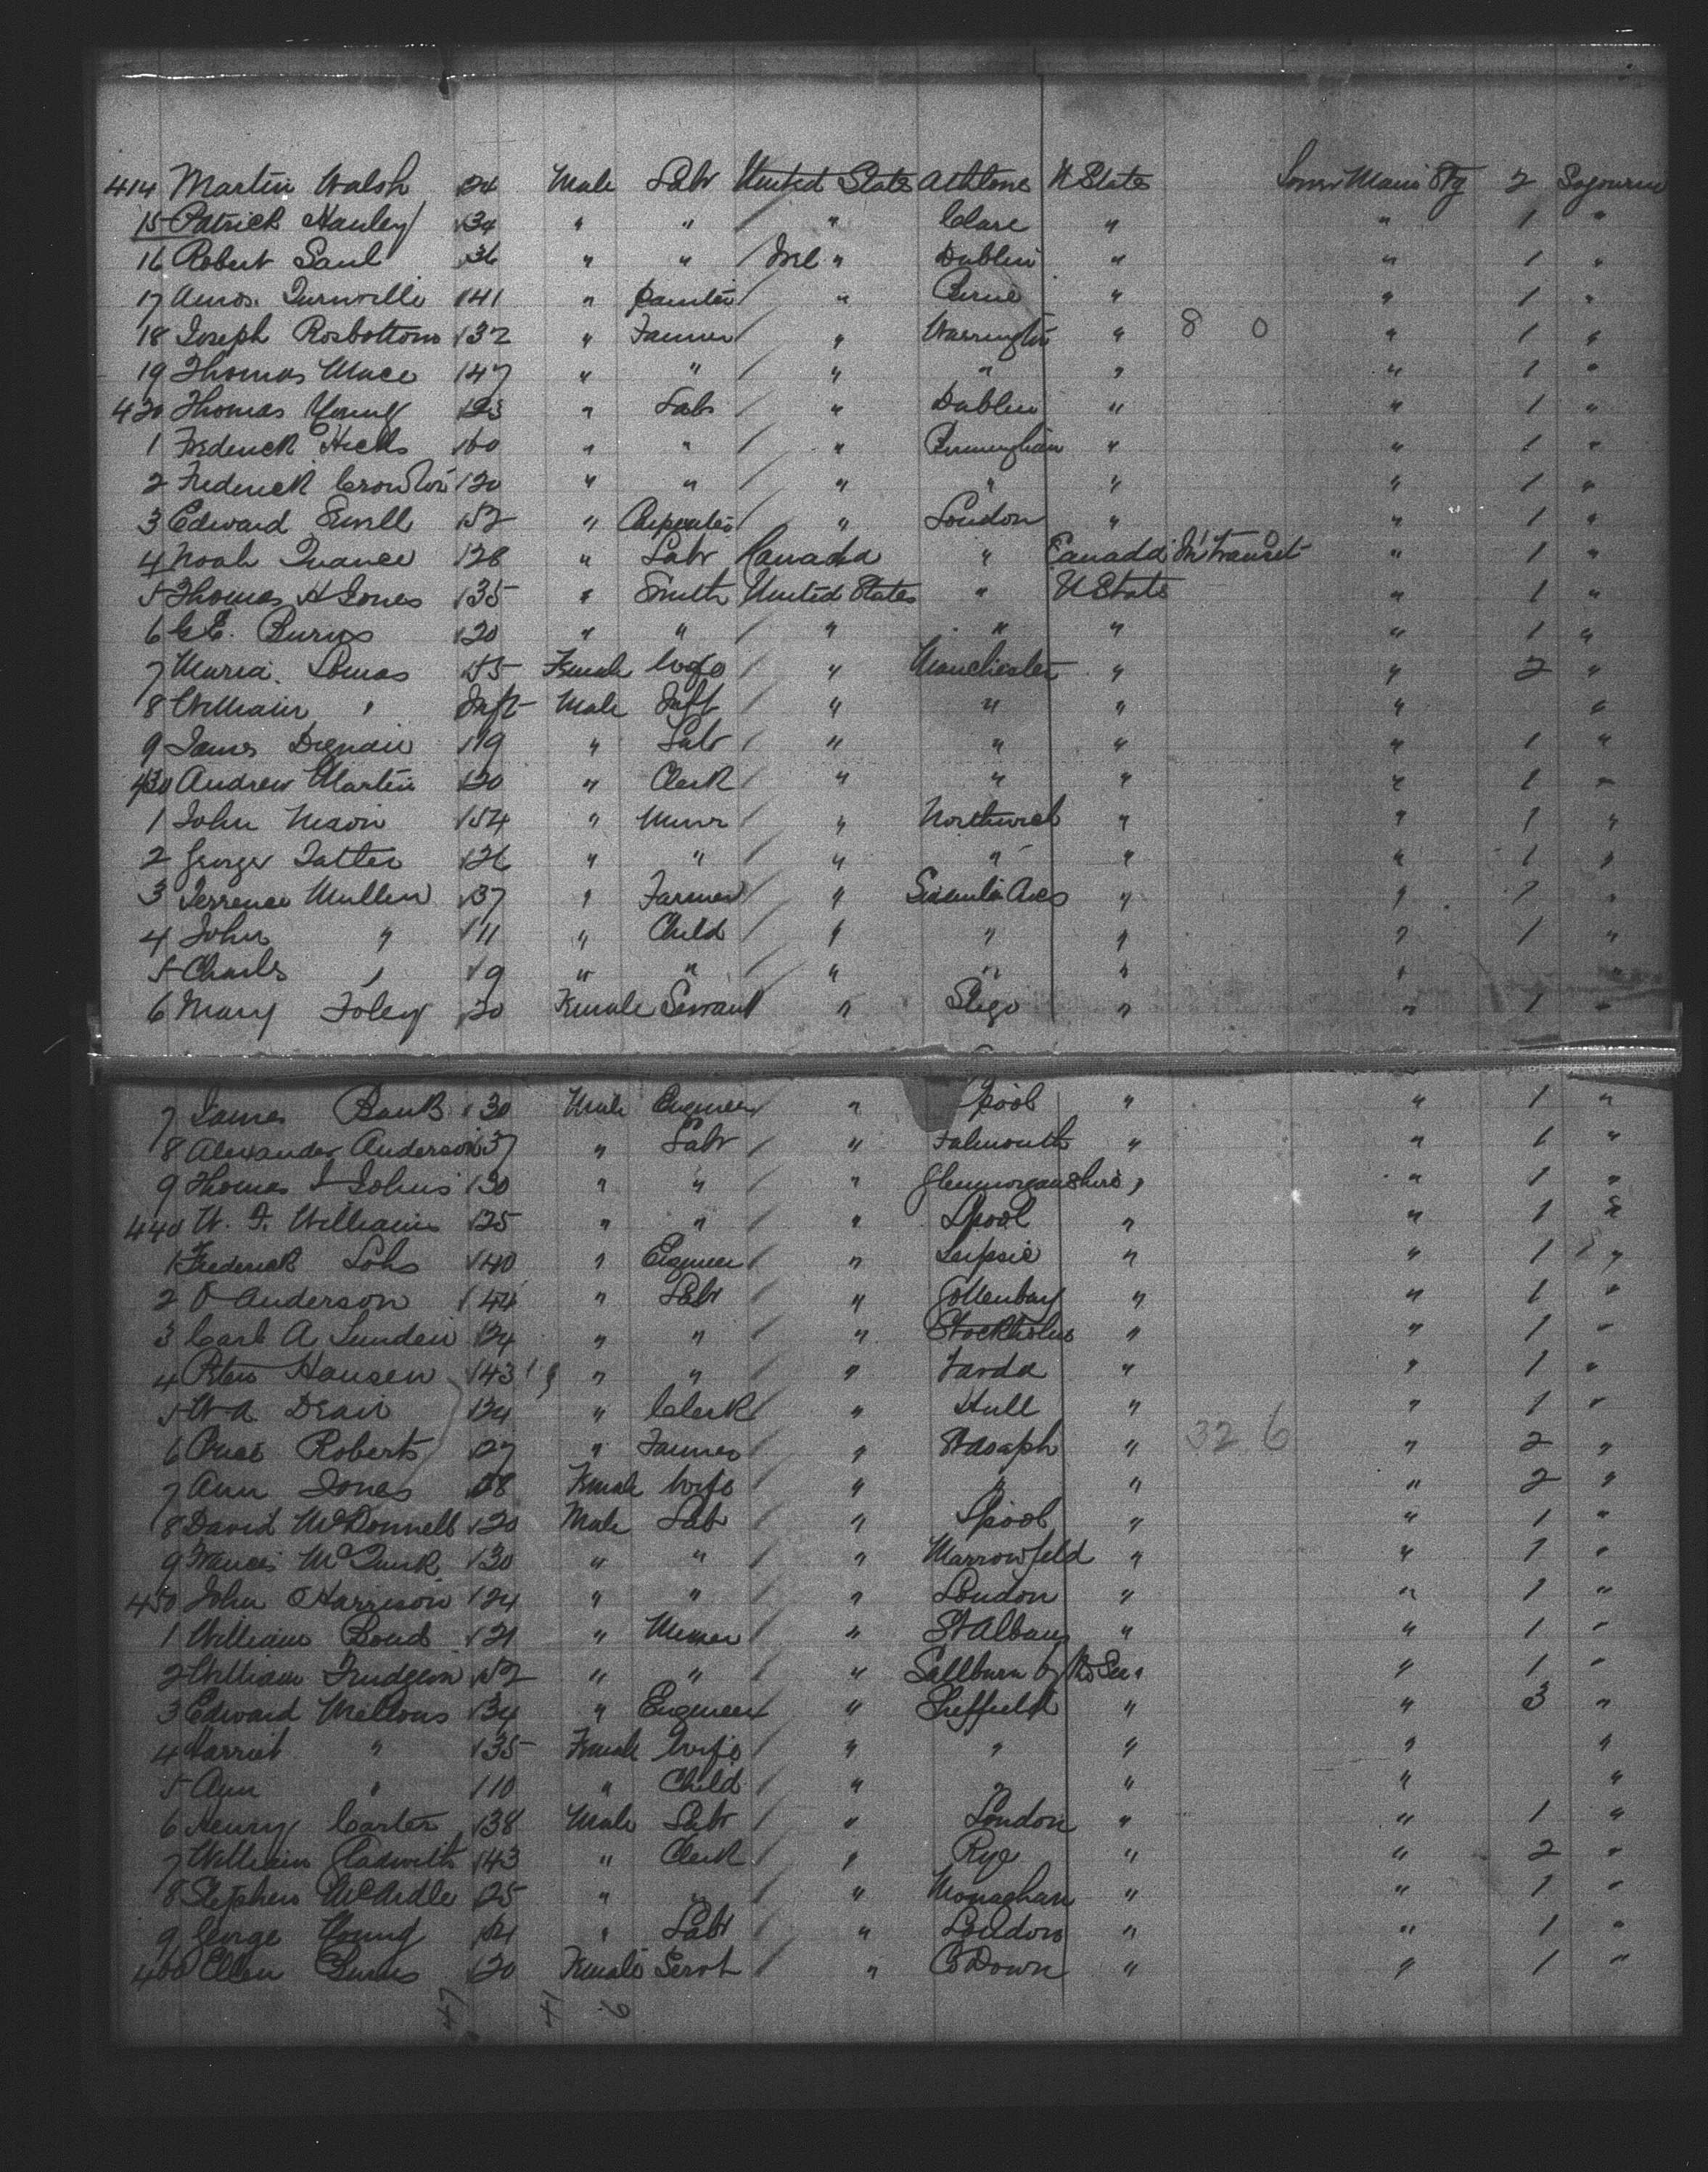 414 Martin Walsh 24 Male Labr United States Athlone U States Lower Main Stg 2 Sojourn
15 Patrick Hanley 34 " " " Clare " " 1 "
16 Robert Saul 36 " " " Dublin " " 1 "
17 Amos. Turnville 41 " " " " 1 "
18 Joseph Rosbottom 32 " Farmer " Warrington " 8 0 " 1 "
19 Thomas Mace 47 " " " " " " 1 "
420 Thomas Young 23 " Labr " Dublin " " 1 "
1 Frederick Hicks 60 " " " Birmingham " " 1 "
2 Frederick 20 " " " " " " 1 "
3 Edward 52 " Carpenter " London " " 1 "
4 Noah Quance 28 " Labr Canada " Canada In transit " 1 "
5 Thomas H Jones 35 " Smith United States " U States " 1 "
6 G E. Burns 20 " " " " " " 1 "
7 Maria. Lomas 45 Female Wife " Manchester " " 2 "
8 William " Inft Male Inft " " " " "
9 James Dignan 19 " Labr " " " " 1 "
430 Andrew Martin 20 " Clerk " " " " 1 "
1 John Nixon 54 " Miner " Northwich " " 1 "
2 George Tatler 26 " " " " " " 1 "
3 Terrence Mullen 37 " Farmer " " " 1 "
4 John " 11 " Child " " " " 1 "
5 Charles " 9 " " " " " " "
6 Mary Foley 20 Female Servant " Sligo " " 1 "
7 James Banks 30 Male Engineer " Lpool " " 1 "
8 Alexander Anderson 37 " Labr " Falmouth " " 1 "
9 Thomas J Johns 30 " " " Glenmorganshire " " 1 "
440 W. J. Williams 25 " " " Lpool " " 1 "
1 Frederick Lohs 40 " Engineer " Leipsic " " 1 "
2 O Anderson 44 " Labr " Gottenburg " " 1 "
3 Carl A Lunden 24 " " " Stockholm " " 1 "
4 Peter Hansen 43 " " " " " 1 "
5 W A Dean 24 " Clerk " Hull " " 1 "
6 Price Roberts 27 " Farmer " St Asaph " 32 6 " 2 "
7 Ann Jones 28 Female Wife " " " " 2 "
8 David McDonnell 20 Male Labr " Lpool " " 1 "
9 Francis McGurk 30 " " " Marrowfeld " " 1 "
450 John Harrison 24 " " " London " " 1 "
1 William Bond 21 " Miner " St Albans " " 1 "
2 William Trudgeon 52 " " " Saltburn by the Sea " " 1 "
3 Edward Mellows 34 " Engineer " Sheffield " " 3 "
4 Harriet " 35 Female Wife " " " " "
5 Ann " 10 " Child " " " " "
6 Henry Carter 38 Male Labr " London " " 1 "
7 William Gladwith 43 " Clerk " Rye " " 2 "
8 Stephen McArdle 25 " " " Monaghan " " 1 "
9 George Young 21 " Labr " London " " 1 "
460 Ellen Burns 20 Female Servt " Co Down " " 1 "
47 41 6